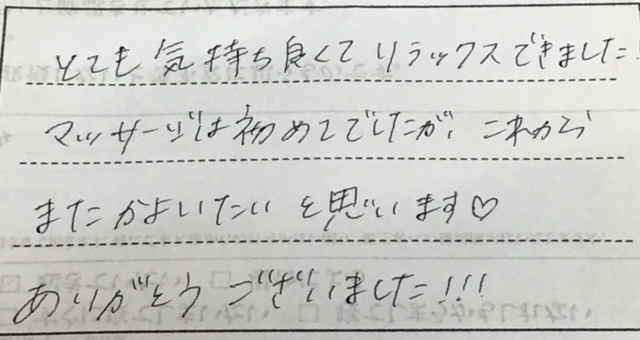 とても気持ち良くてリラックスできました
マッサージは初めてでしたが、これから
またかよいたいと思います♡
ありがとうございました!!!